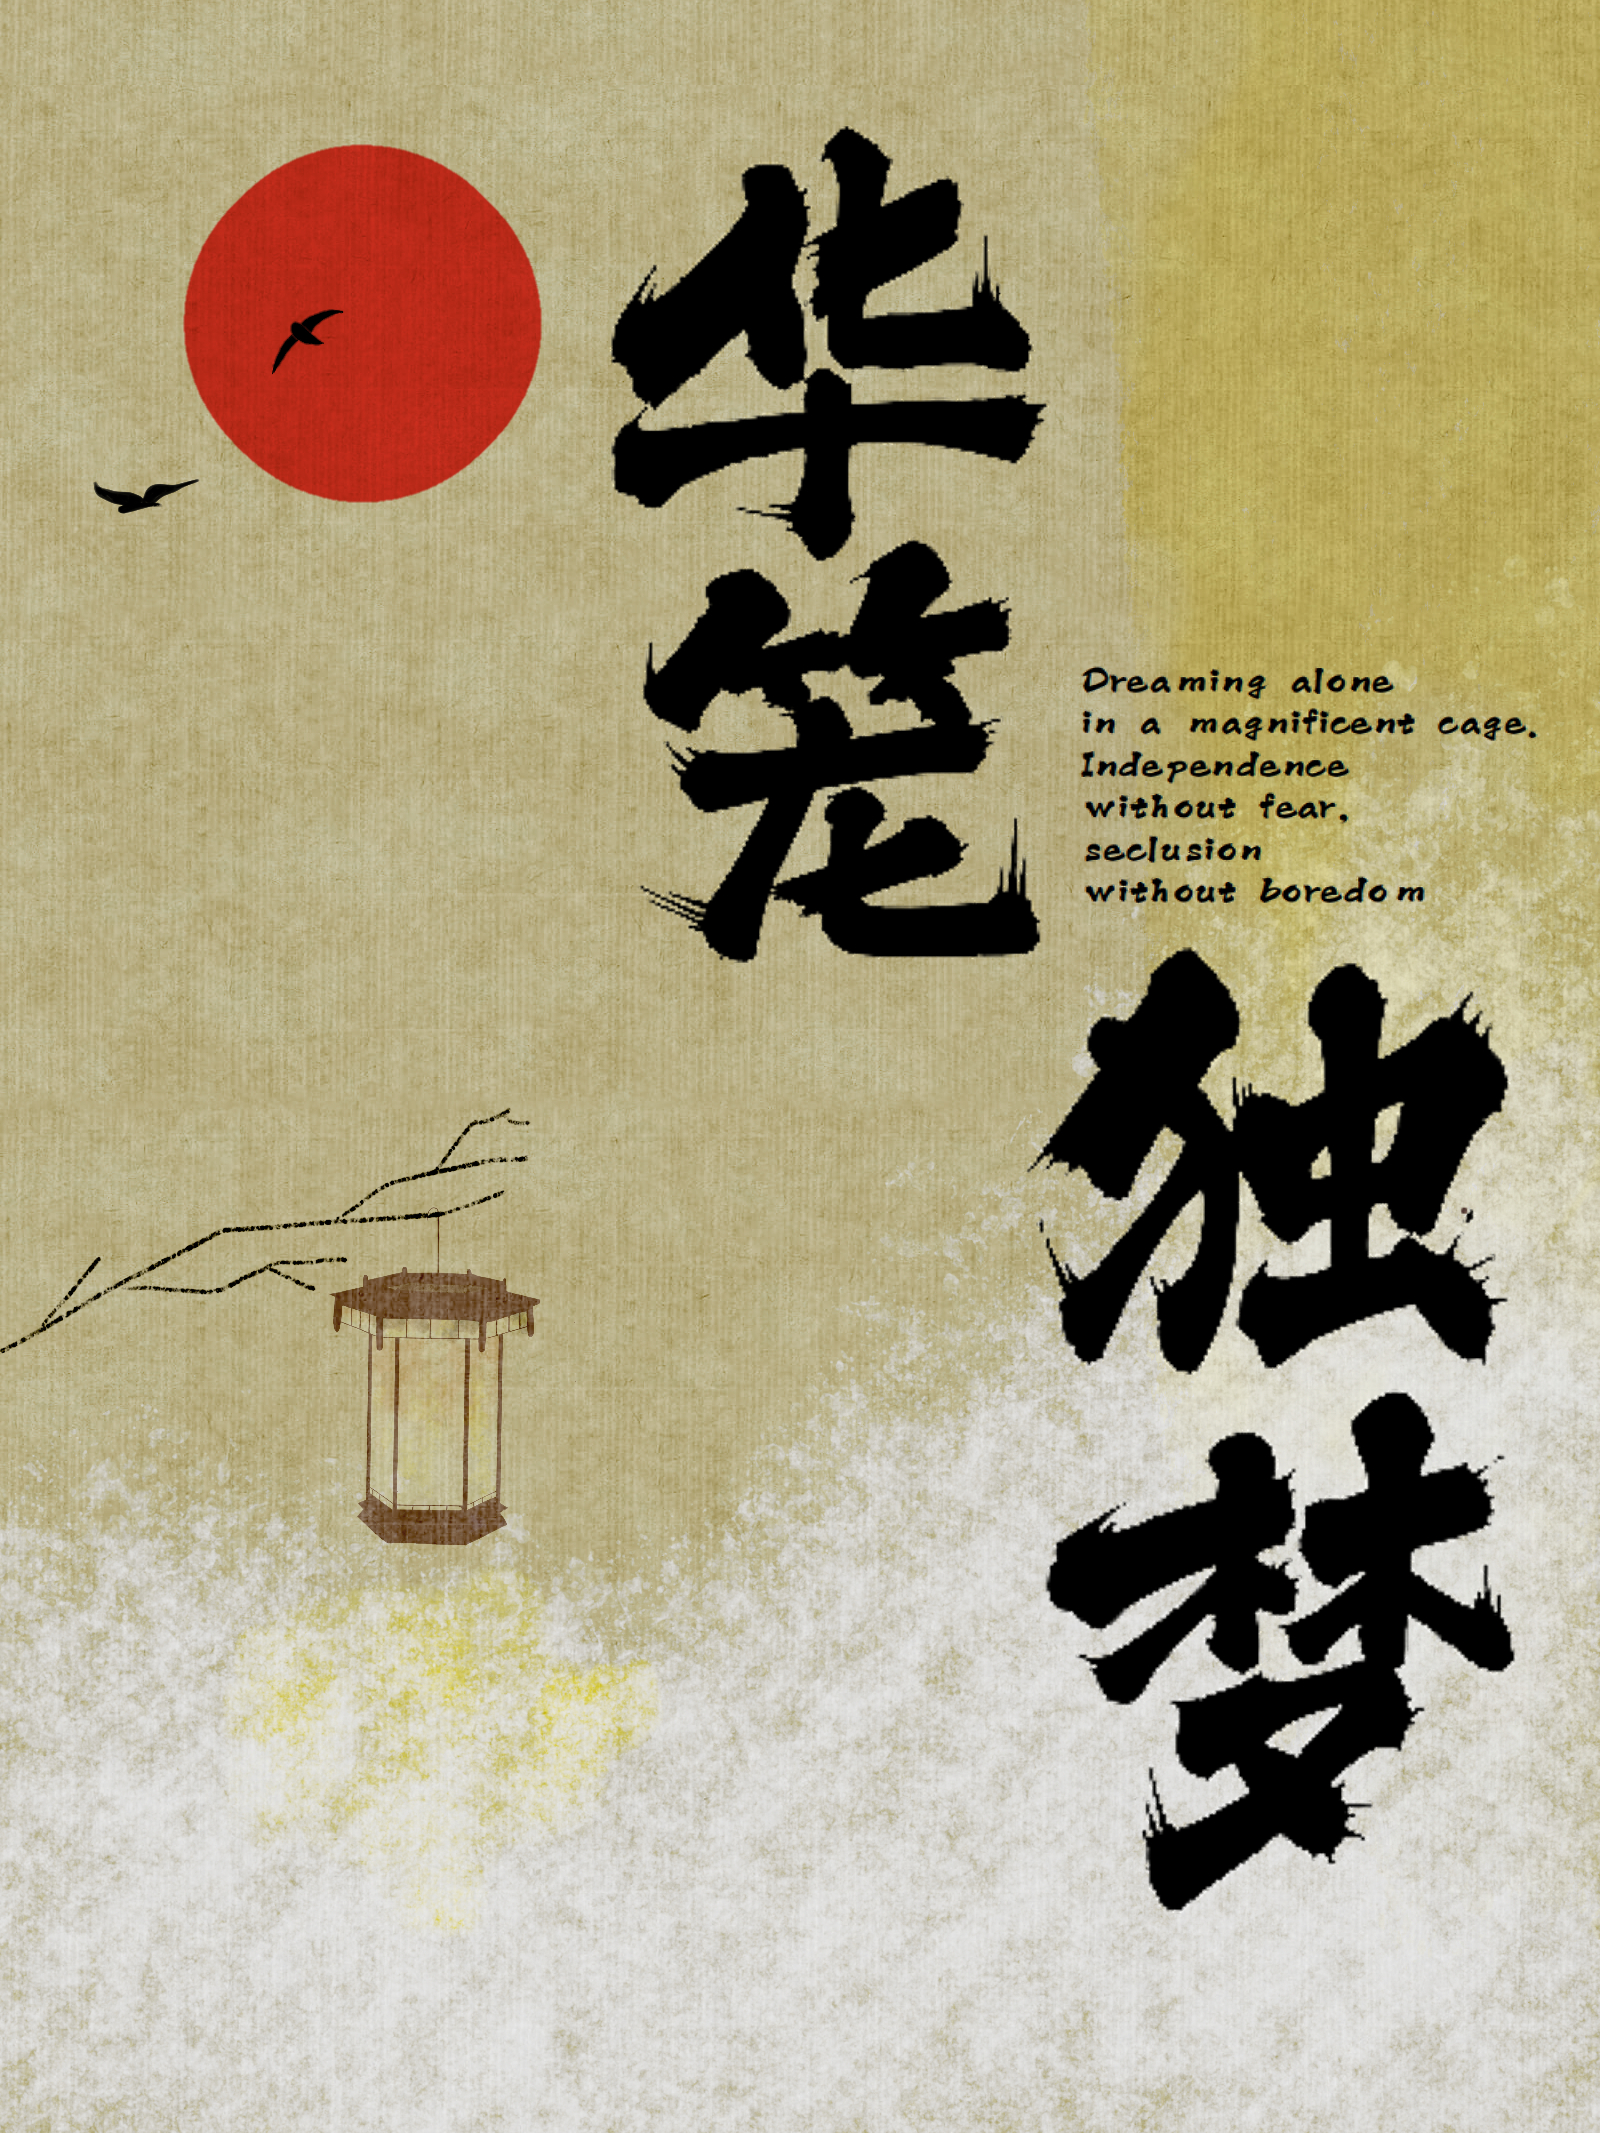 华笼
Dreaming alone
in a magnificent cage.
Independence
without fear,
seclusion
without boredom
独梦